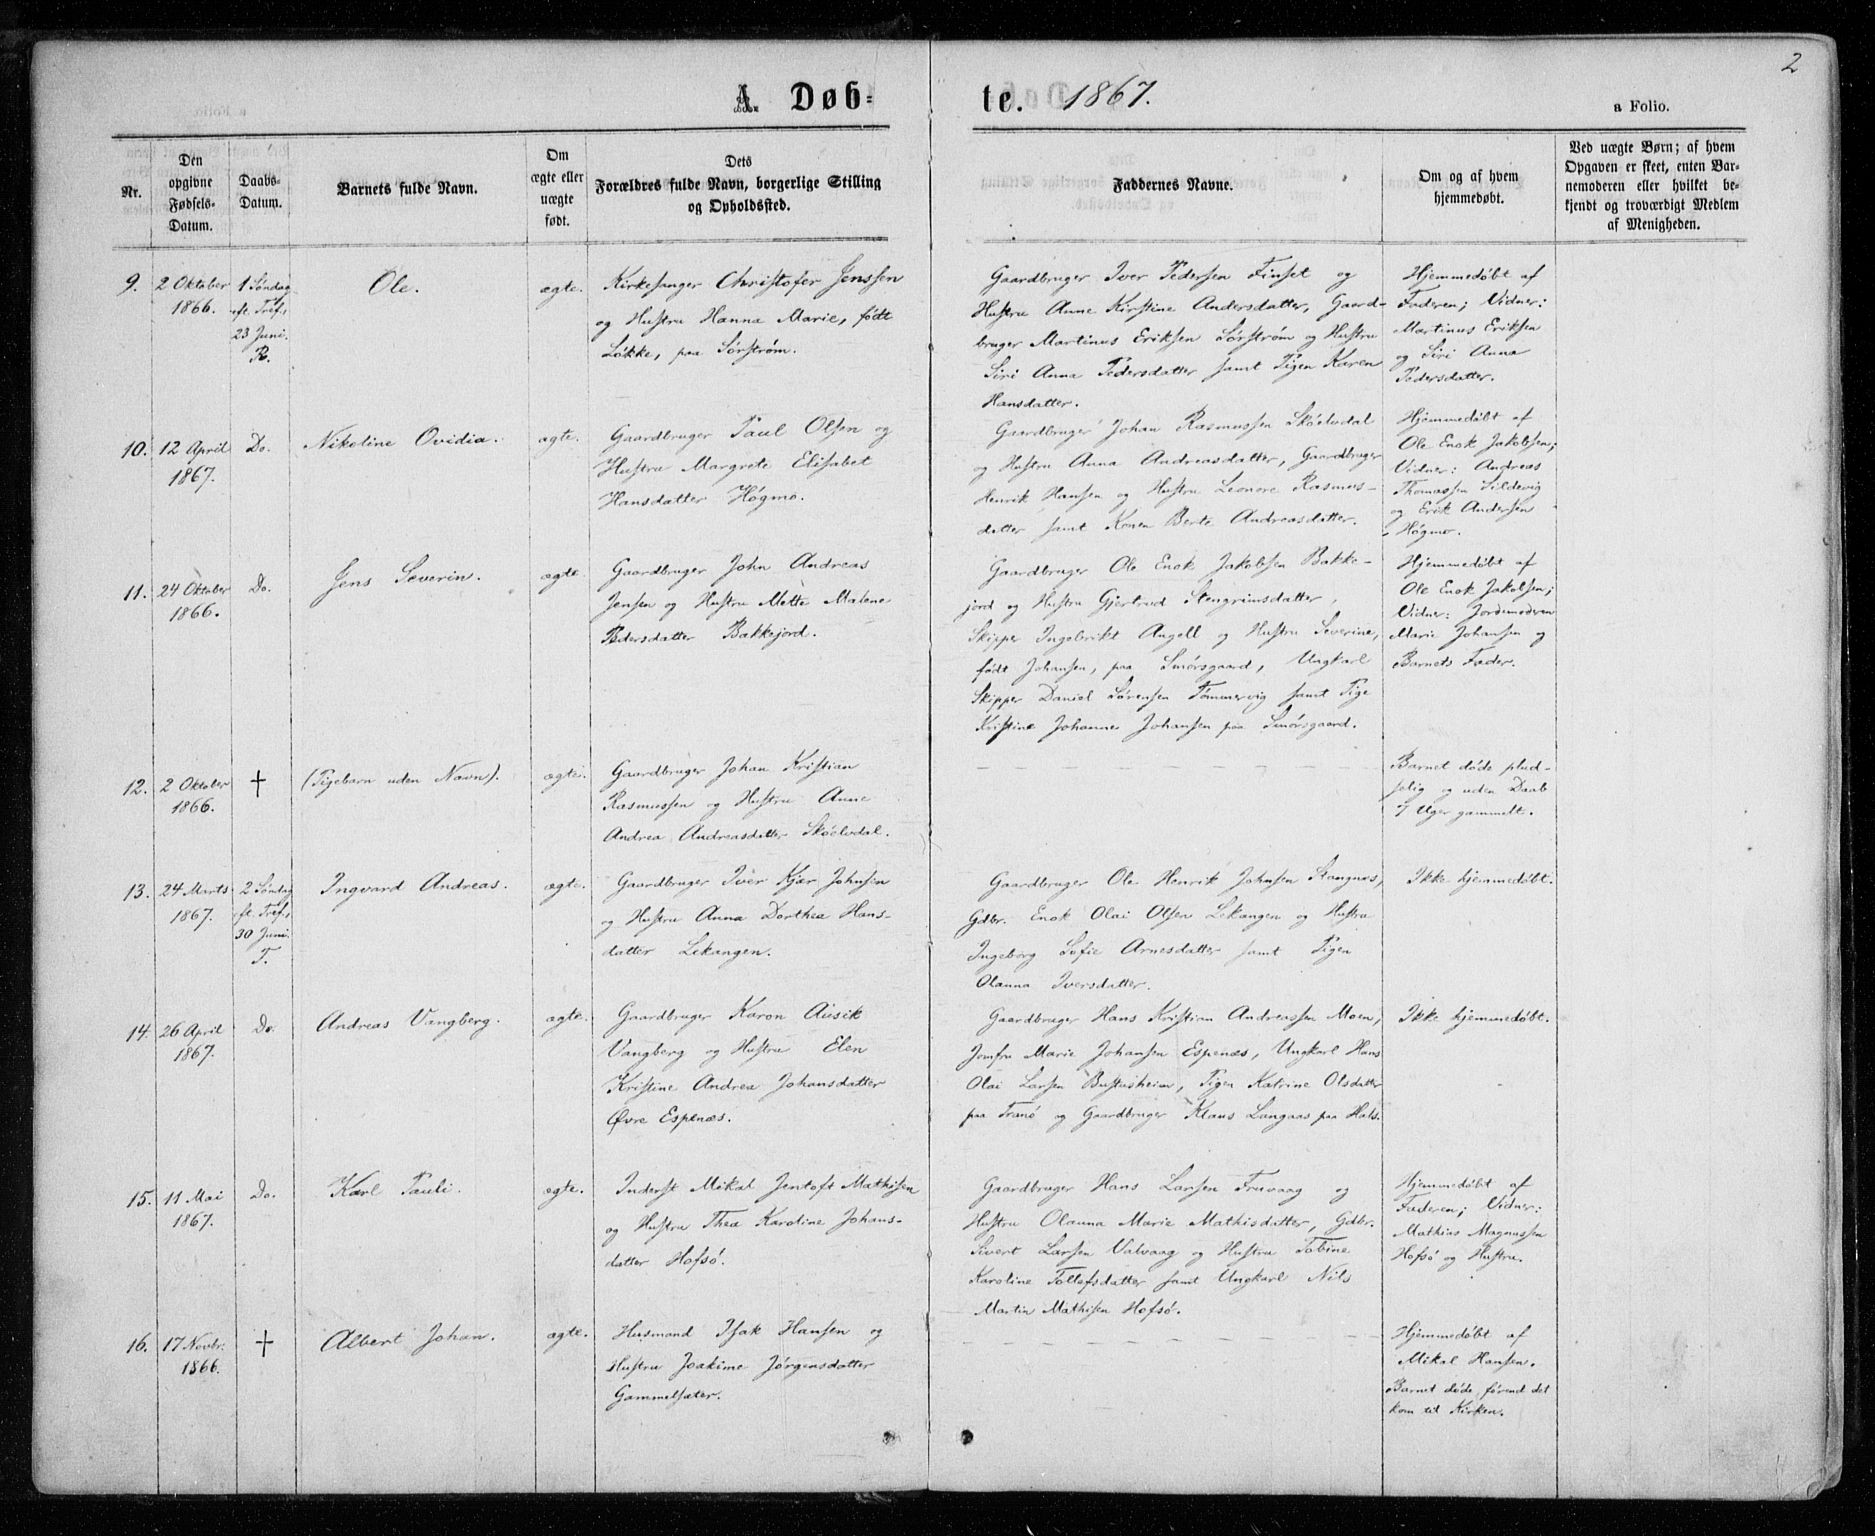 2
A. Døb=
te. 1867.
a Folio.
Nr.
Den
opgivne
Fødsels-
Datum.
Daabs-
Datum.
Barnets fulde Navn.
Om
ægte eller
uægte
født.
Dets
Forældres fulde Navn, borgerlige Stilling
og Opholdssted.
Faddernes Navne.
Om og af hvem
hjemmedøbt.
Ved uægte Børn; af hvem
Opgaven er skeet, enten Bar-
nemoderen eller hvilket be-
kjendt og troværdigt Medlem
af Menigheden.
9.
2 Oktober
1866.
1 Søndag
eft. Tref.,
23 Juni.
R.
Ole.
ægte.
Kirkesanger Christofer Jenssen
og Hustru Hanna Marie, født
Løkke, paa Sørstrøm.
Gaardbruger Iver Pedersen Finset og
Hustru Anne Kirstine Andersdatter, Gaard-
bruger Martinus Eriksen Sørstrøm og Hustru
Siri Anna Pedersdatter samt Pigen Karen
Hansdatter.
Hjemmedøbt af
Faderen; Vidner:
Martinus Eriksen
og Siri Anna
Pedersdatter.
10.
12 April
1867.
Do.
Nikoline Ovidia.
ægte.
Gaardbruger Paul Olsen og
Hustru Margrete Elisabet
Hansdatter Høgmo.
Gaardbruger Johan Rasmussen Skóelvdal
og Hustru Anna Andreasdatter, Gaardbruger
Henrik Hansen og Hustru Leonore Rasmus-
datter samt Konen Berte Andreasdatter.
Hjemmedøbt af
Ole Enok Jakobsen;
Vidner: Andreas
Thomassen Sildevig
og Erik Andersen
Høgmo.
11.
24 Oktober
1866.
Do.
Jens Severin.
ægte.
Gaardbruger John Andreas
Jensen og Hustru Mette Malene
Pedersdatter Bakkejord.
Gaardbruger Ole Enok Jakobsen Bakke-
jord og Hustru Gjertrud Stengrimsdatter,
Skipper Ingebrikt Angell og Hustru Severine,
født Johansen, paa Smørsgaard, Ungkarl
Skipper Daniel Sørensen Tømmervig samt Pige
Kristine Johanne Johansen paa Smørsgaard.
Hjemmedøbt af
Ole Enok Jakobsen;
Vidner: Jordemoderen
Marie Johansen og
Barnets Fader.
12.
2 Oktober
1866.
†
(Pigebarn uden Navn).
ægte.
Gaardbruger Johan Kristian
Rasmussen og Hustru Anne
Andrea Andreasdatter Skóelvdal.
Barnet døde plud-
selig og uden Daab
7 Uger gammelt.
13.
24 Marts
1867.
2 Søndag
eft. Tref.,
30 Juni.
T.
Ingvard Andreas.
ægte.
Gaardbruger Iver Kjær Johnsen
og Hustru Anna Dorthea Hans-
datter Lekangen.
Gaardbruger Ole Henrik Johnsen Stangnæs,
Gdbr. Enok Olai Olsen Lekangen og Hustru
Ingeborg Sofie Arnesdatter samt Pigen
Olanna Iversdatter.
Ikke hjemmedøbt.
14.
26 April
1867.
Do.
Andreas Vangberg.
ægte.
Gaardbruger Karon Ausik
Vangberg og Hustru Elen
Kristine Andrea Johansdatter
Øvre Espenæs.
Gaardbruger Hans Kristian Andreassen Moen,
Jomfru Marie Johansen Espenæs, Ungkarl Hans
Olai Larsen Bustusheim, Pigen Katrine Olsdatter
paa Tranø og Gaardbruger Klaus Langaas paa Hals.
Ikke hjemmedøbt.
15.
11 Mai
1867.
Do.
Karl Pauli.
ægte.
Inderst Mikal Jentoft Mathisen
og Hustru Thea Karoline Johans-
datter Hofsø.
Gaardbruger Hans Larsen Truvaag og
Hustru Olanna Marie Mathisdatter, Gdbr.
Sivert Larsen Valvaag og Hustru Tobine
Karoline Tollefsdatter samt Ungkarl Nils
Martin Mathisen Hofsø.
Hjemmedøbt af
Faderen; Vidner:
Mathias Magnussen
Hofsø og Hustru.
16.
17 Novbr.
1866.
†
Albert Johan.
ægte.
Husmand Isak Hansen og
Hustru Joakime Jørgensdatter
Gammelsæter.
Hjemmedøbt af
Mikal Hansen.
Barnet døde, førend det
kom til Kirken.